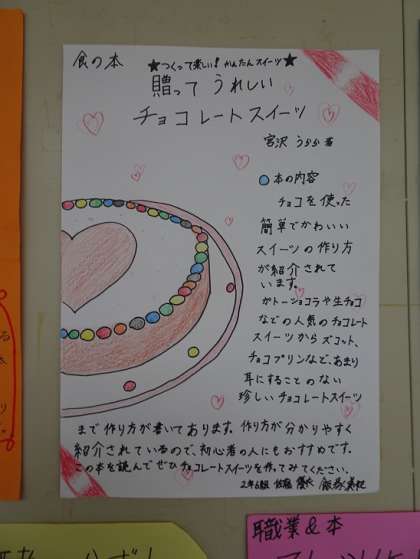 食の本
★つくって楽しい！かんたんスイーツ★
贈ってうれしい
チョコレートスイーツ
宮沢 うらら 著
本の内容
チョコを使った
簡単でかわいい
スイーツの作り方
が紹介されて
います。
ガトーショコラや生チョコ
などの人気のチョコレート
スイーツからズコット、
チョコプリンなど、あまり
耳にすることのない
珍しいチョコレートスイーツ
まで作り方が書いてあります。作り方が分かりやすく
紹介されているので、初心者の人にもおすすめです。
この本を読んでぜひチョコレートスイーツを作ってみてください。
2年6組 佐藤
職業&本